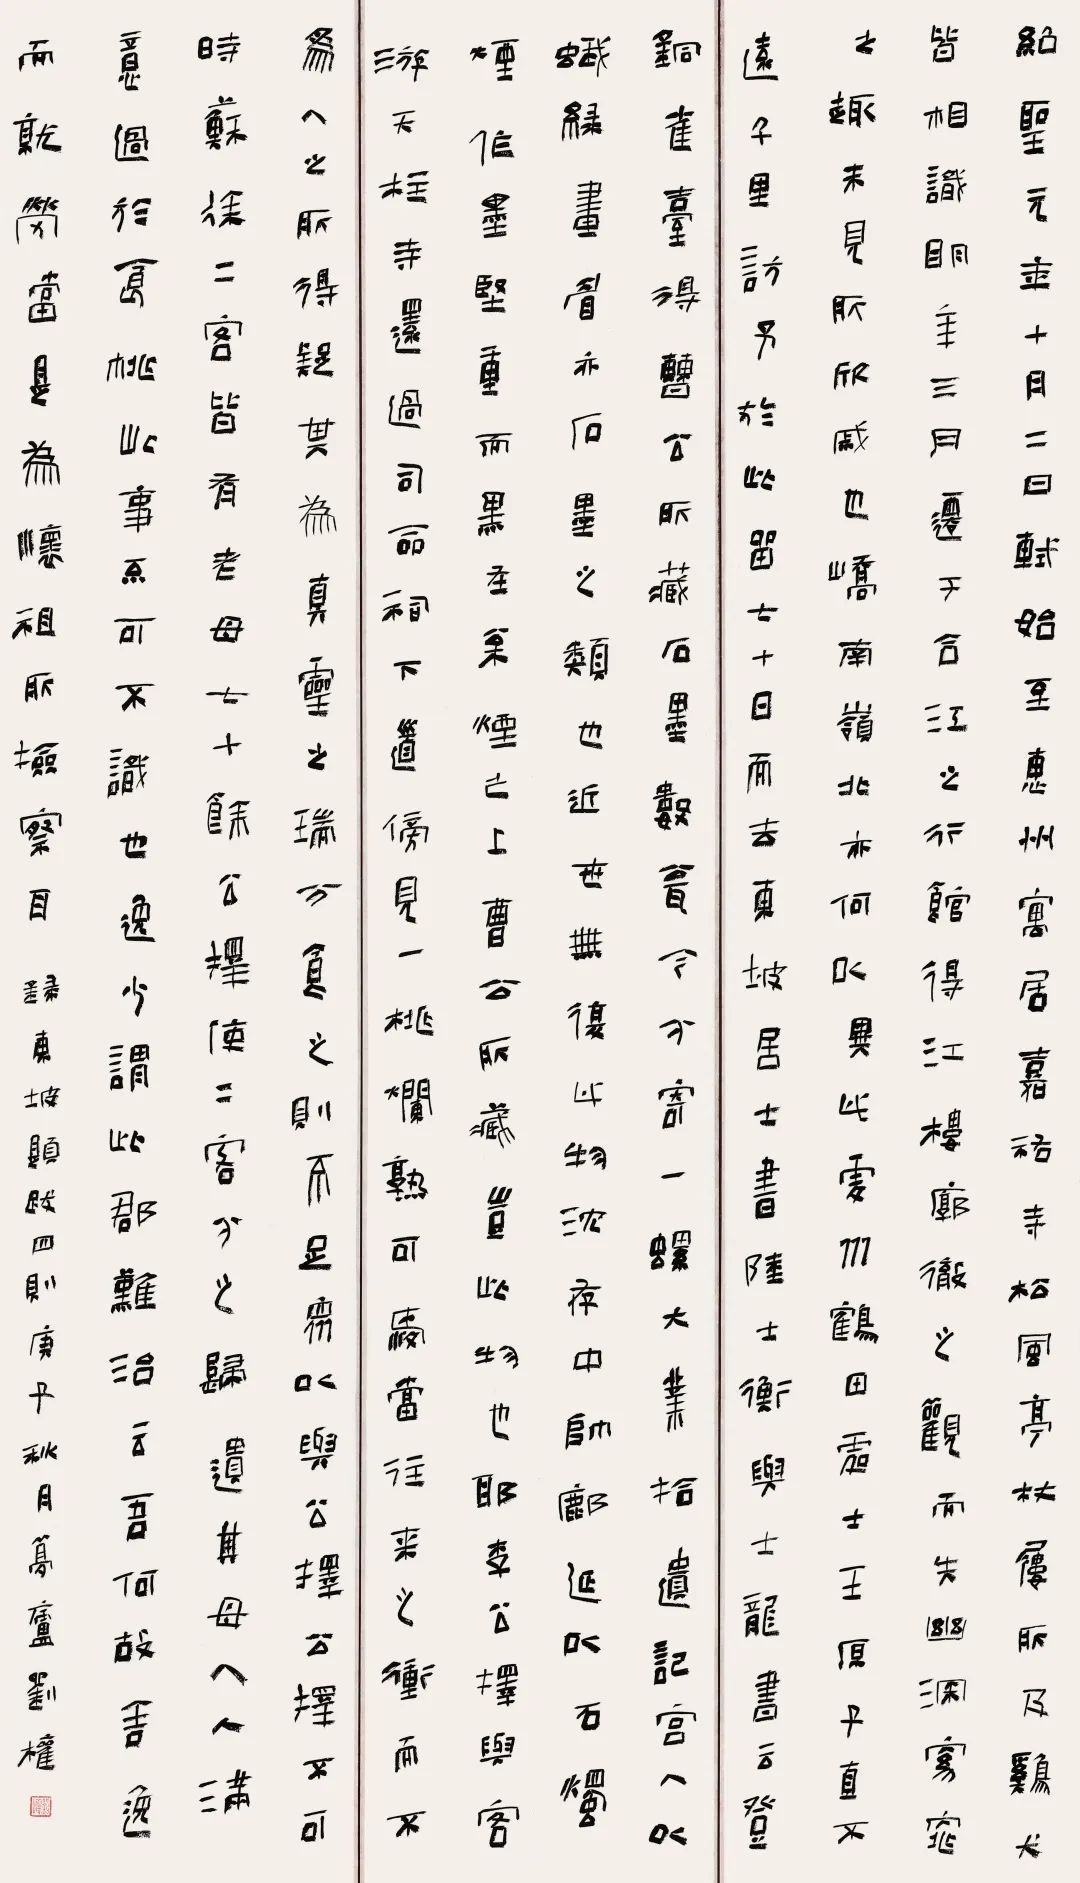 紹聖元年十月二日軾始至惠州寓居嘉祐寺松風亭杖屨所及雞犬
皆相識明年三月遷于合江之行館得江樓廓徹之觀而失幽深窈窕
之趣未見所欣戚也嶠南嶺北亦何以異此虔州鶴田處士王原子直不
遠千里訪予於此留七十日而去東坡居士書陸士衡與士龍書云登
銅雀臺得曹公所藏石墨數甕今分寄一螺大業拾遺記宮人以
蛾綠畫眉亦石墨之類也近世無復此物沈存中帥鄜延以石燭
煙作墨堅重而黑在松煙之上曹公所藏豈此物也耶李公擇與客
游天柱寺還過司命祠下道傍見一桃爛熟可愛當往來之衝而不
為人之所得疑其為真靈之瑞分食之則不足眾以與公擇公擇不可
時蘇徐二客皆有老母七十餘公擇使二客分之歸遺其母人人滿
意過於食桃此事不可不識也逸少謂此郡難治云吾何故舍逸
而就勞當是為懷祖所檢察耳 錄東坡題跋四則庚子秋月廬劉權